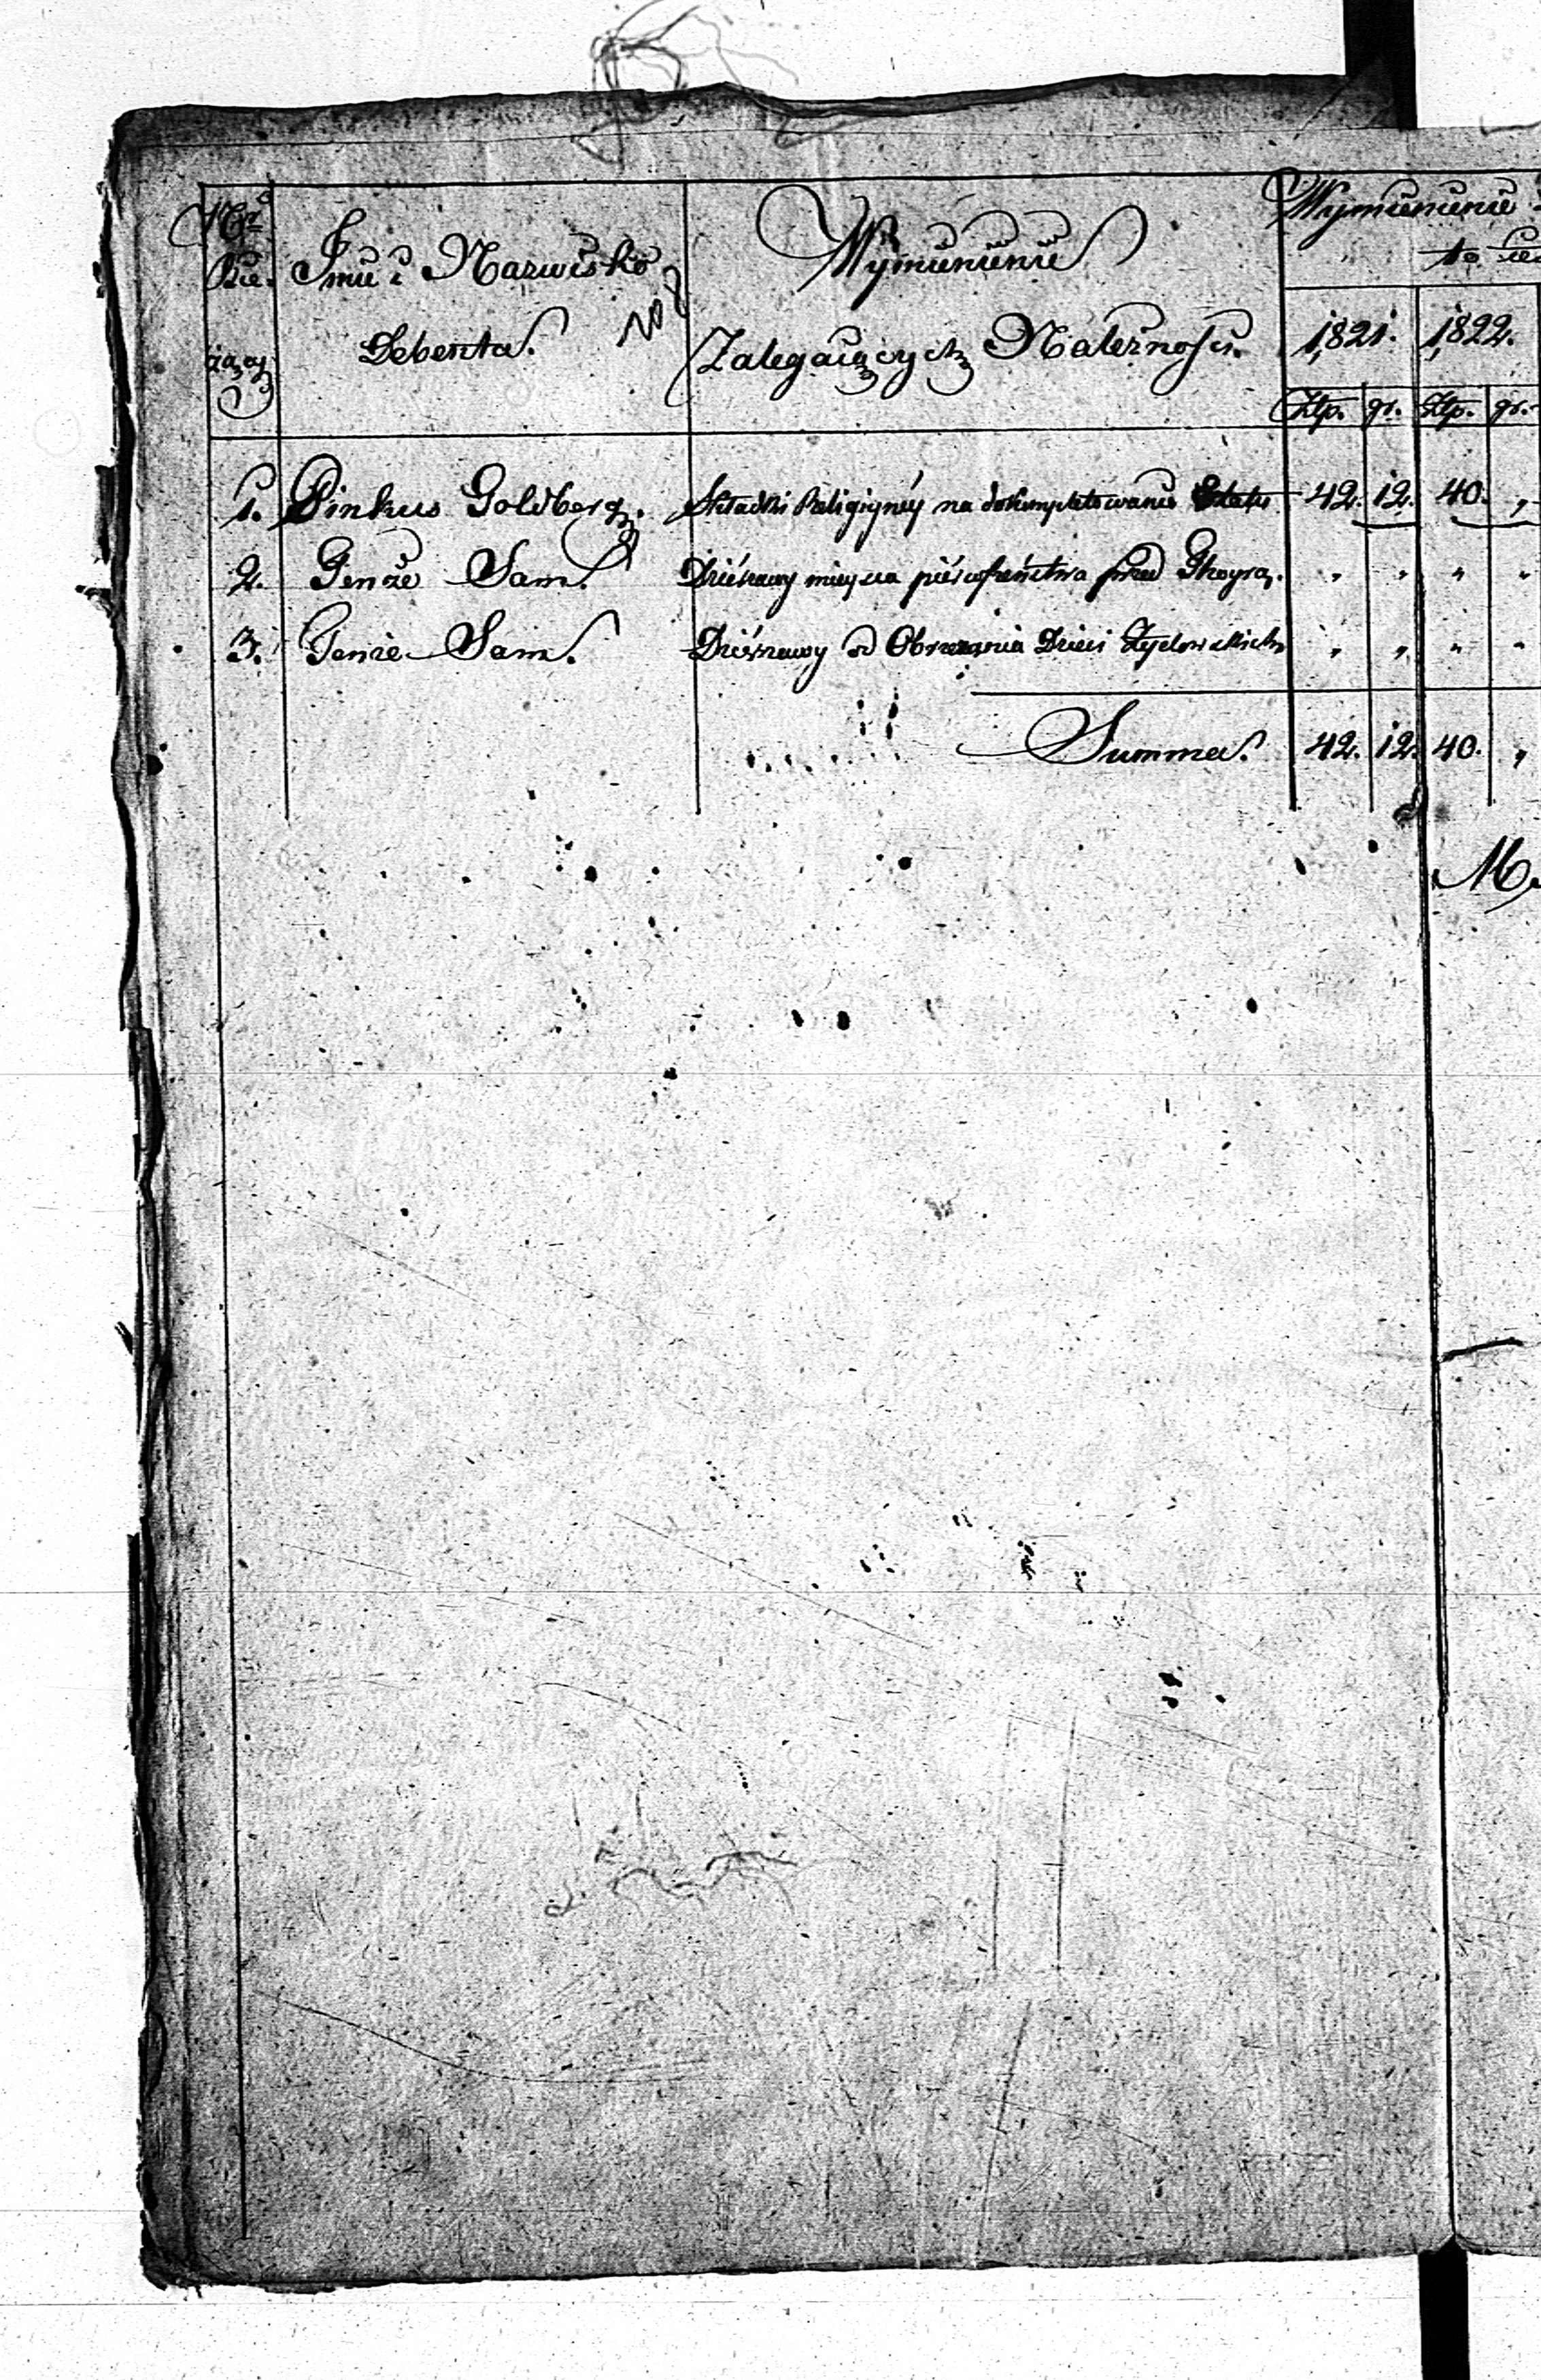 Nro Bie- żący
Imie i Nazwisko
Debenta.
Wymienienie
Zalegaiących Należności.
Wymienienie
1821. 1822.
Złp. gr. Złp. gr.
1. Pinkus Goldberg. Składki Religijnéy na dokompletowanie Etatu 42. 12. 40. "
2. Tenże Sam. Dzierżawy mieysca pierwszeństwa przed Thorą. " " " "
3. Tenże Sam. Dzierżawy od Obrzezania Dzieci Żydowskich " " " "
Summa. 42. 12. 40. "